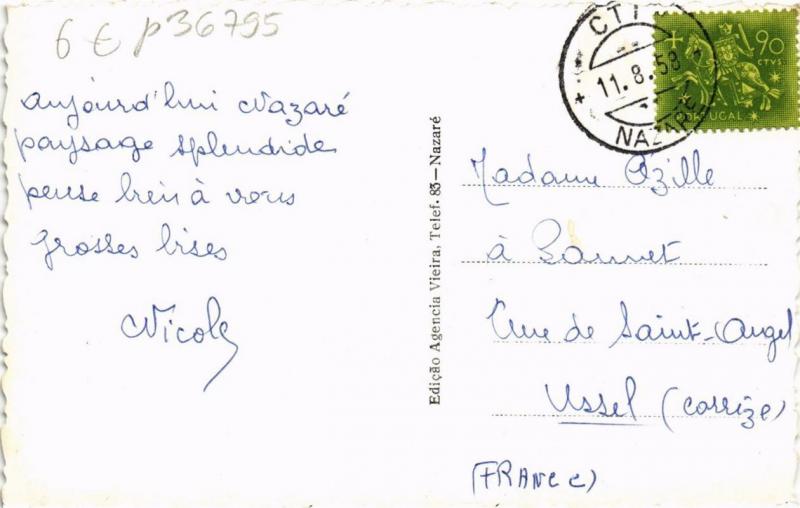 6 € p36795
aujourd'hui Nazaré
paysage splendide
pense bien à vous
grosses bises
Nicole
Edição Agencia Vieira, Telef. 83 — Nazaré
CTT
11.8.58
NAZARÉ
90
CTVS
PORTUGAL
Madame Ozille
à
Cne de Saint-Angel
Ussel (Corrize)
(FRANCE)